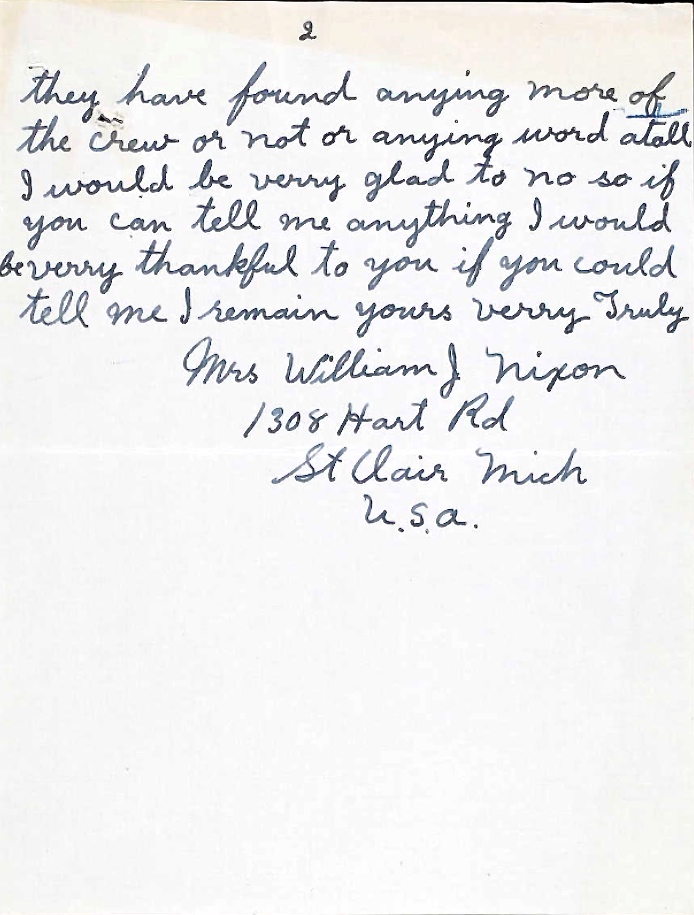 2
they have found anying more of
the crew or not or anying word atall
I would be verry glad to no so if
you can tell me anything I would
be verry thankful to you if you could
tell me I remain yours verry Truly
Mrs William J. Nixon
1308 Hart Rd
St Clair Mich
U.S.a.